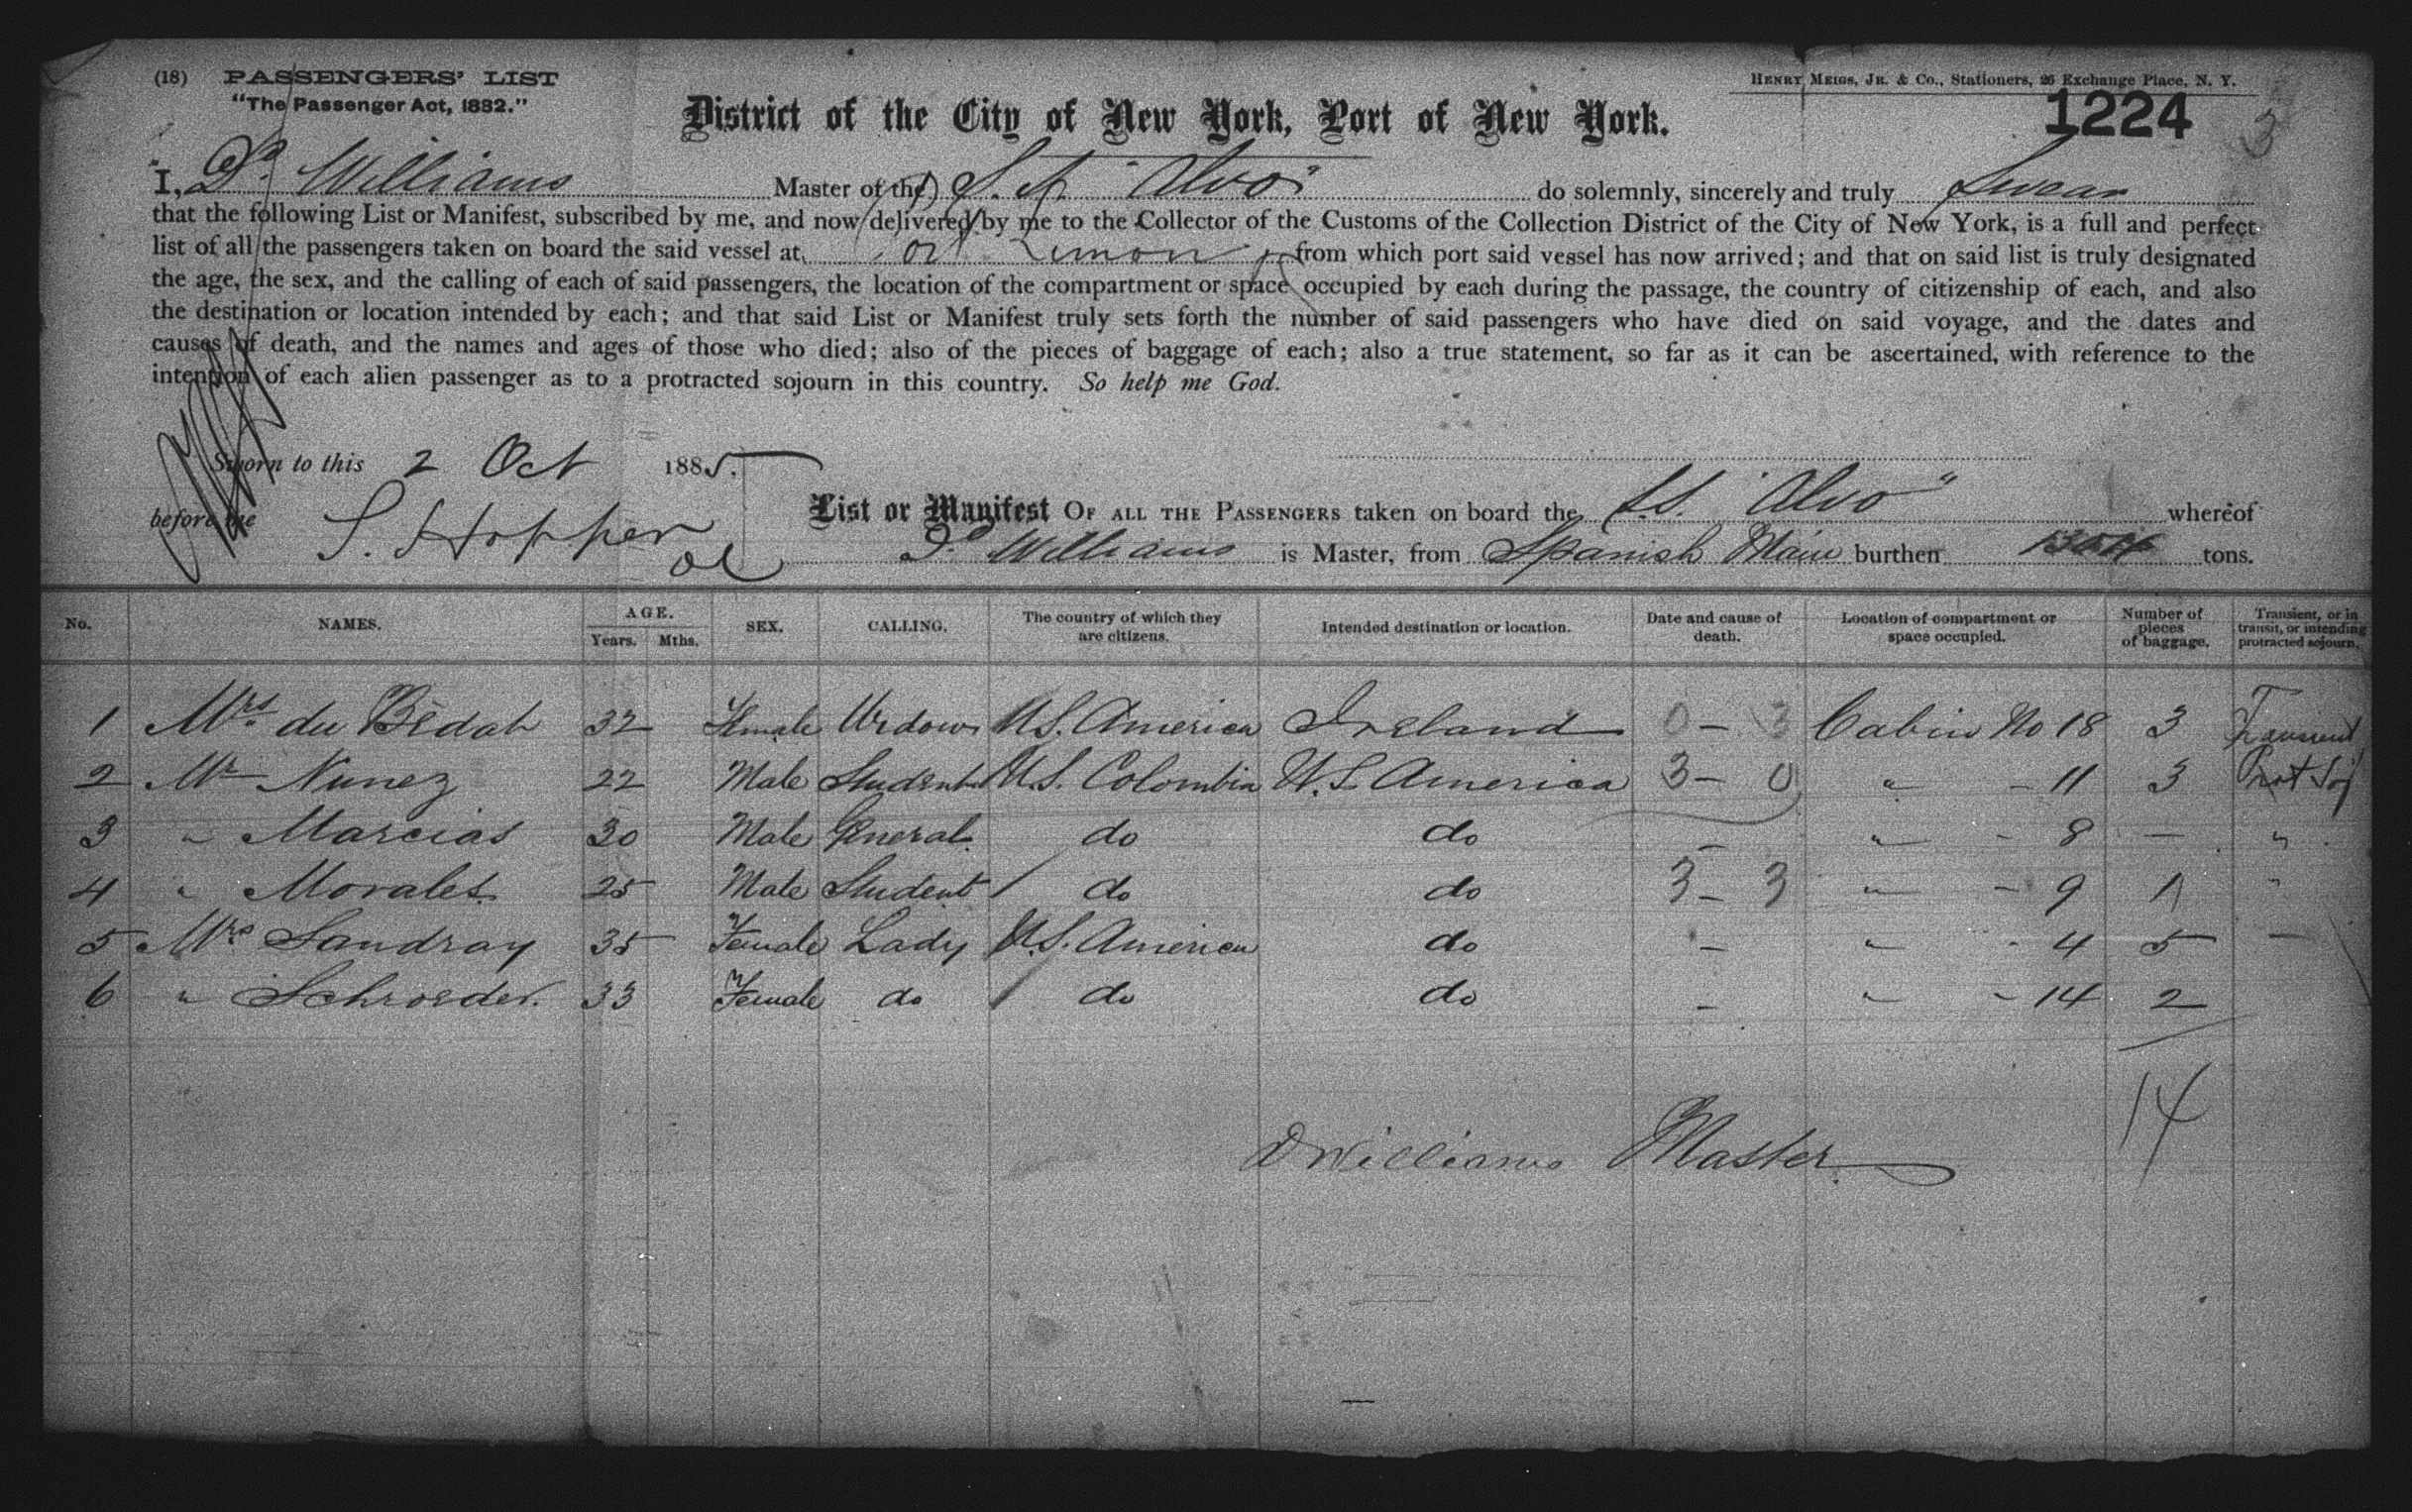 (18) PASSENGERS' LIST
"The Passenger Act, 1882."
HENRY MEIGS, JR. & CO., Stationers, 26 Exchange Place, N. Y.
District of the City of New York, Port of New York.
1224 3
I, D. Williams Master of the S.S. "Alvo" do solemnly, sincerely and truly Swear
that the following List or Manifest, subscribed by me, and now delivered by me to the Collector of the Customs of the Collection District of the City of New York, is a full and perfect
list of all the passengers taken on board the said vessel at Port Limon from which port said vessel has now arrived; and that on said list is truly designated
the age, the sex, and the calling of each of said passengers, the location of the compartment or space occupied by each during the passage, the country of citizenship of each, and also
the destination or location intended by each; and that said List or Manifest truly sets forth the number of said passengers who have died on said voyage, and the dates and
causes of death, and the names and ages of those who died; also of the pieces of baggage of each; also a true statement, so far as it can be ascertained, with reference to the
intention of each alien passenger as to a protracted sojourn in this country. So help me God.
Sworn to this 2 Oct 1885.
before me S. Hopper
List or Manifest OF ALL THE PASSENGERS taken on board the S.S. "Alvo" whereof
D. Williams is Master, from Spanish Main burthen tons.
No. NAMES. AGE. Years. Mths. SEX. CALLING. The country of which they are citizens. Intended destination or location. Date and cause of death. Location of compartment or space occupied. Number of pieces of baggage. Transient, or in transit, or intending protracted sojourn.
1 Mrs. du Bedat 32 Female Widow U.S. America Ireland 0 - 3 Cabin No 18 3 Transient
2 Mr Nunez 22 Male Student U.S. Colombia U.S America 3 - 0 " - 11 3 Prot Soj
3 " Marcias 30 Male General do do - " - 8 - "
4 " Morales 25 Male Student do do 3 - 3 " - 9 1 "
5 Mrs Sandray 35 Female Lady U.S. America do - " - 4 5 -
6 " Schroeder. 33 Female do do do - " - 14 2
14
D Williams Master